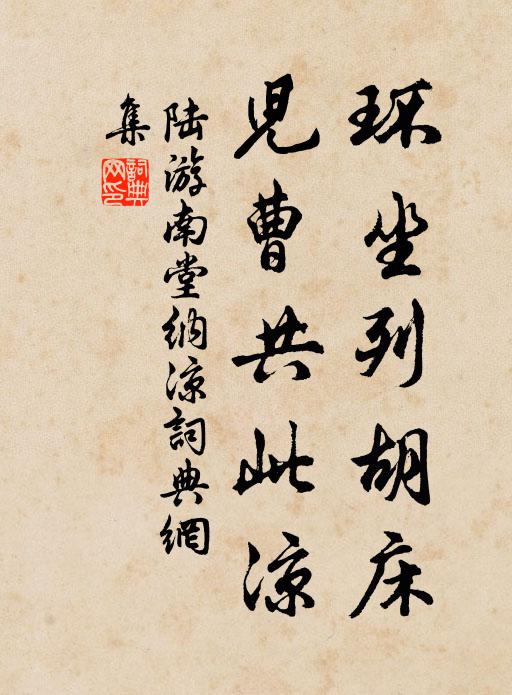 环坐列胡床
児曹共此凉
陆游南堂纳凉詞典網
集
詞典
网印